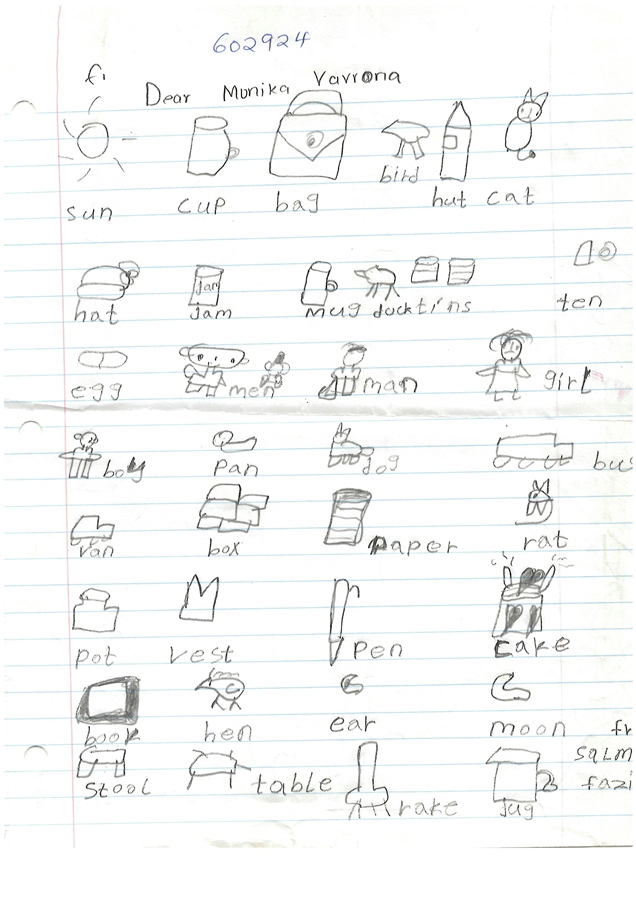 602924
fi
Dear Munika Vavrona
sun cup bag bird hut cat
hat Jam Jam mug duck tins ten
egg men man girl
boy pan dog bus
van box paper rat
pot vest pen cake
book hen ear moon fr
stool table rake jug salm
fazi